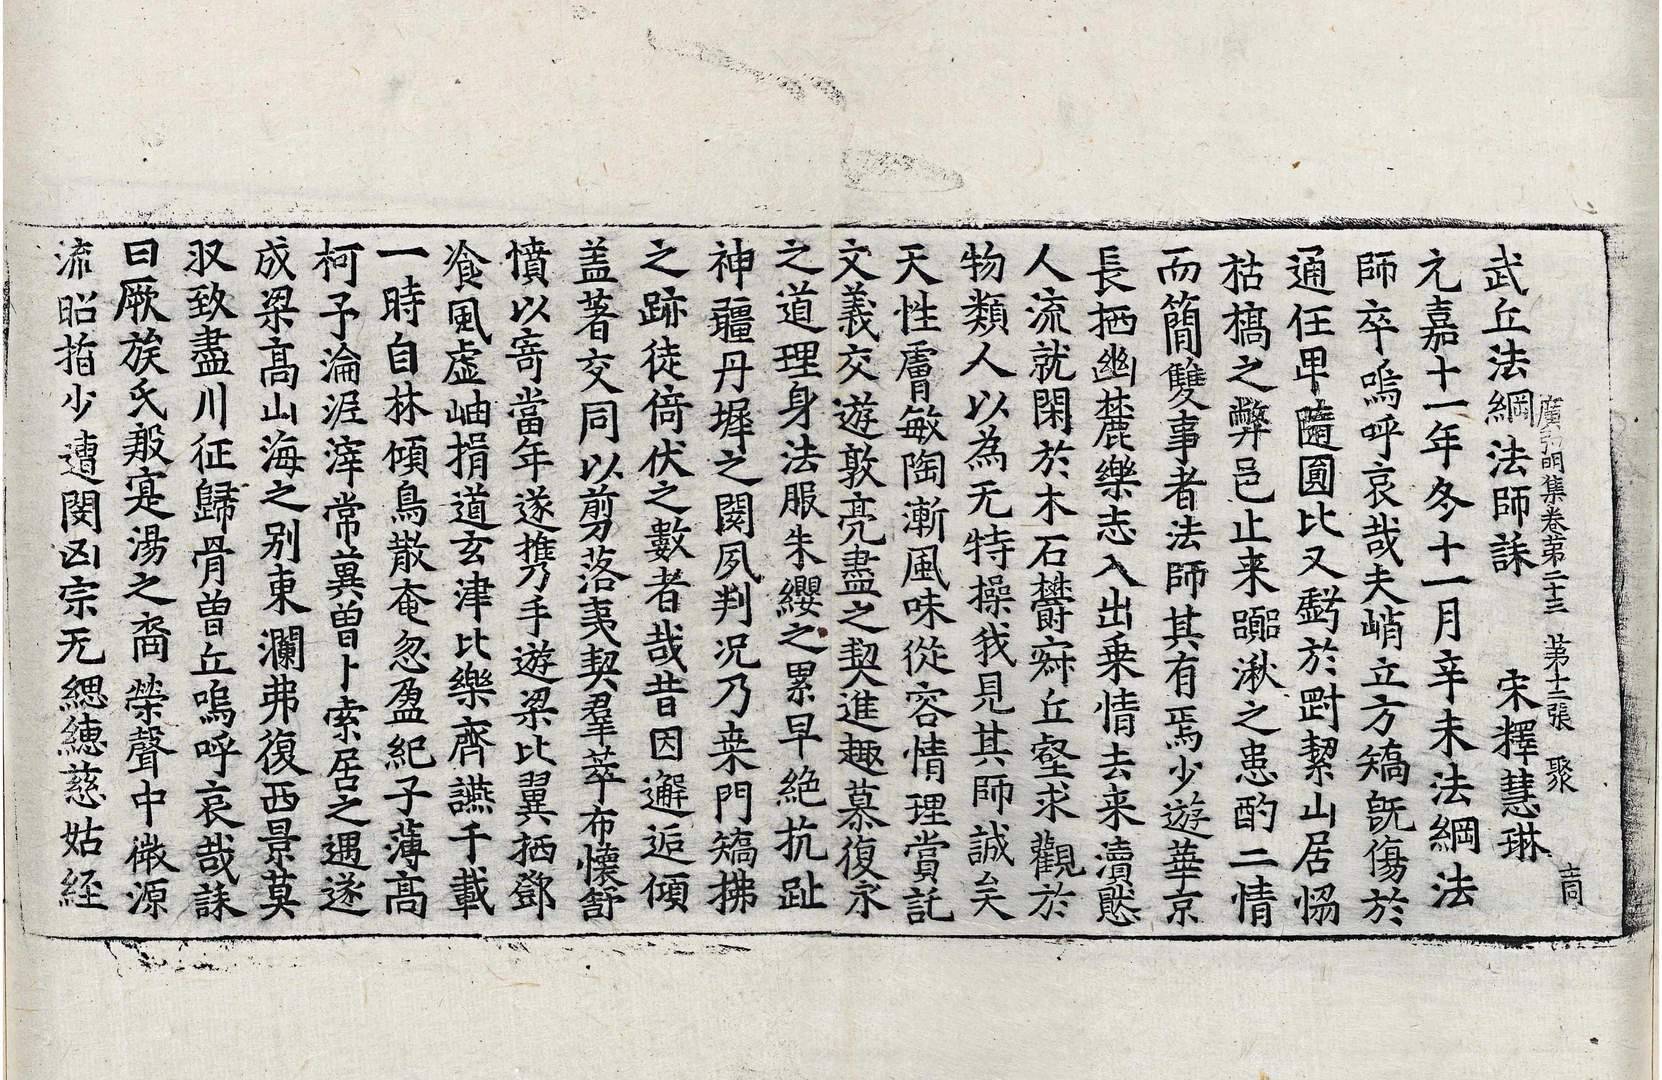 廣弘明集卷第二十三　第十二張　聚
武丘法綱法師誄　　宋釋慧琳
元嘉十一年冬十一月辛未法綱法
師卒嗚呼哀哉夫峭立方矯旣傷於
通任卑隨圓比又虧於剴絜山居協
枯槁之弊邑止来囂湫之患酌二情
而簡雙事者法師其有焉少遊華京
長栖幽麓樂志入出乗情去来瀆愍
人流就閑於木石欝寂丘壑求觀於
物類人以為无特操我見其師誠矣
天性膚敏陶漸風味從容情理賞託
文義交遊敦亮盡之契進趣慕復永
之道理身法服朱纓之累早絶抗趾
神疆丹墀之闋夙判况乃桒門矯拂
之跡徒倚伏之數者哉昔因邂逅傾
盖著交同以剪落夷契羣萃布懷舒
憤以寄當年遂携手遊梁比翼栖鄧
飡風虚岫捐道玄津比樂齊讌千載
一時自林傾鳥散奄忽盈紀子薄高
柯予淪泥滓常冀曽卜索居之遇遂
成梁高山海之别東瀾弗復西景莫
収致盡川征歸骨曽丘嗚呼哀哉誄
曰厥族氏殷寔湯之裔榮聲中微源
流昭指少遭閔凶宗无緦緫慈姑經